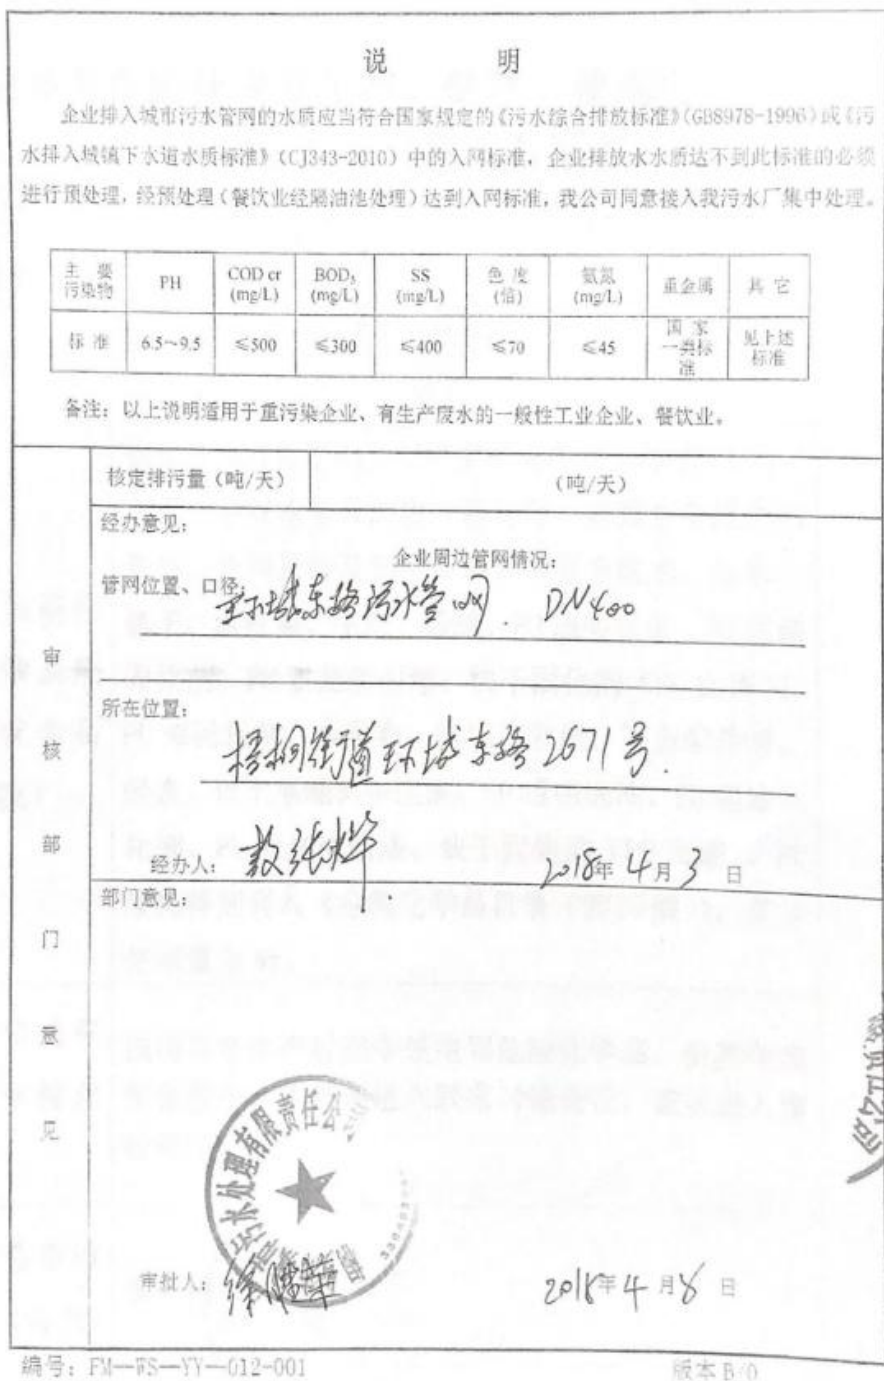 说 明
企业排入城市污水管网的水质应当符合国家规定的《污水综合排放标准》(GB8978-1996)或《污
水排入城镇下水道水质标准》(CJ343-2010)中的入网标准,企业排放水水质达不到此标准的必须
进行预处理,经预处理(餐饮业经隔油池处理)达到入网标准,我公司同意接入我污水厂集中处理。
主 要 污染物 PH COD cr (mg/L) BOD₅ (mg/L) SS (mg/L) 色 度 (倍) 氨氮 (mg/L) 重金属 其 它
标 准 6.5~9.5 ≤500 ≤300 ≤400 ≤70 ≤45 国 家 一类标 准 见上述 标准
备注:以上说明适用于重污染企业、有生产废水的一般性工业企业、餐饮业。
审核部门意见
核定排污量(吨/天) (吨/天)
经办意见:
企业周边管网情况:
管网位置、口径: 环城东路污水管网. DN400
所在位置:
梧桐街道环城东路2671号.
经办人: 2018年4月3日
部门意见:
污水处理有限责任公司
审批人: 2018年4月8日
编号:FM—WS—YY—012-001 版本 B/0
有限责任公司